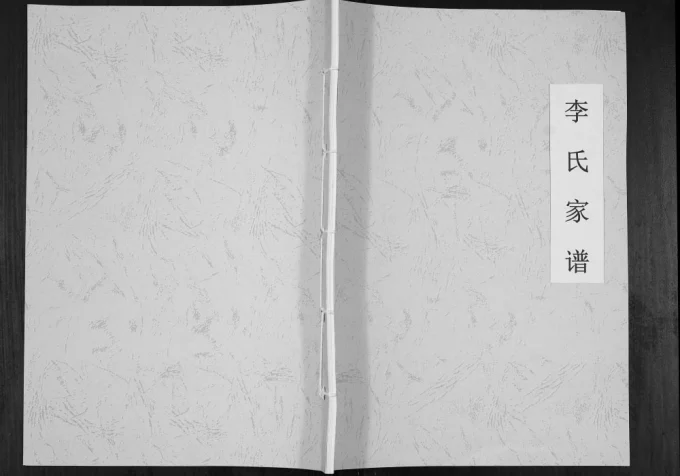 李氏家谱